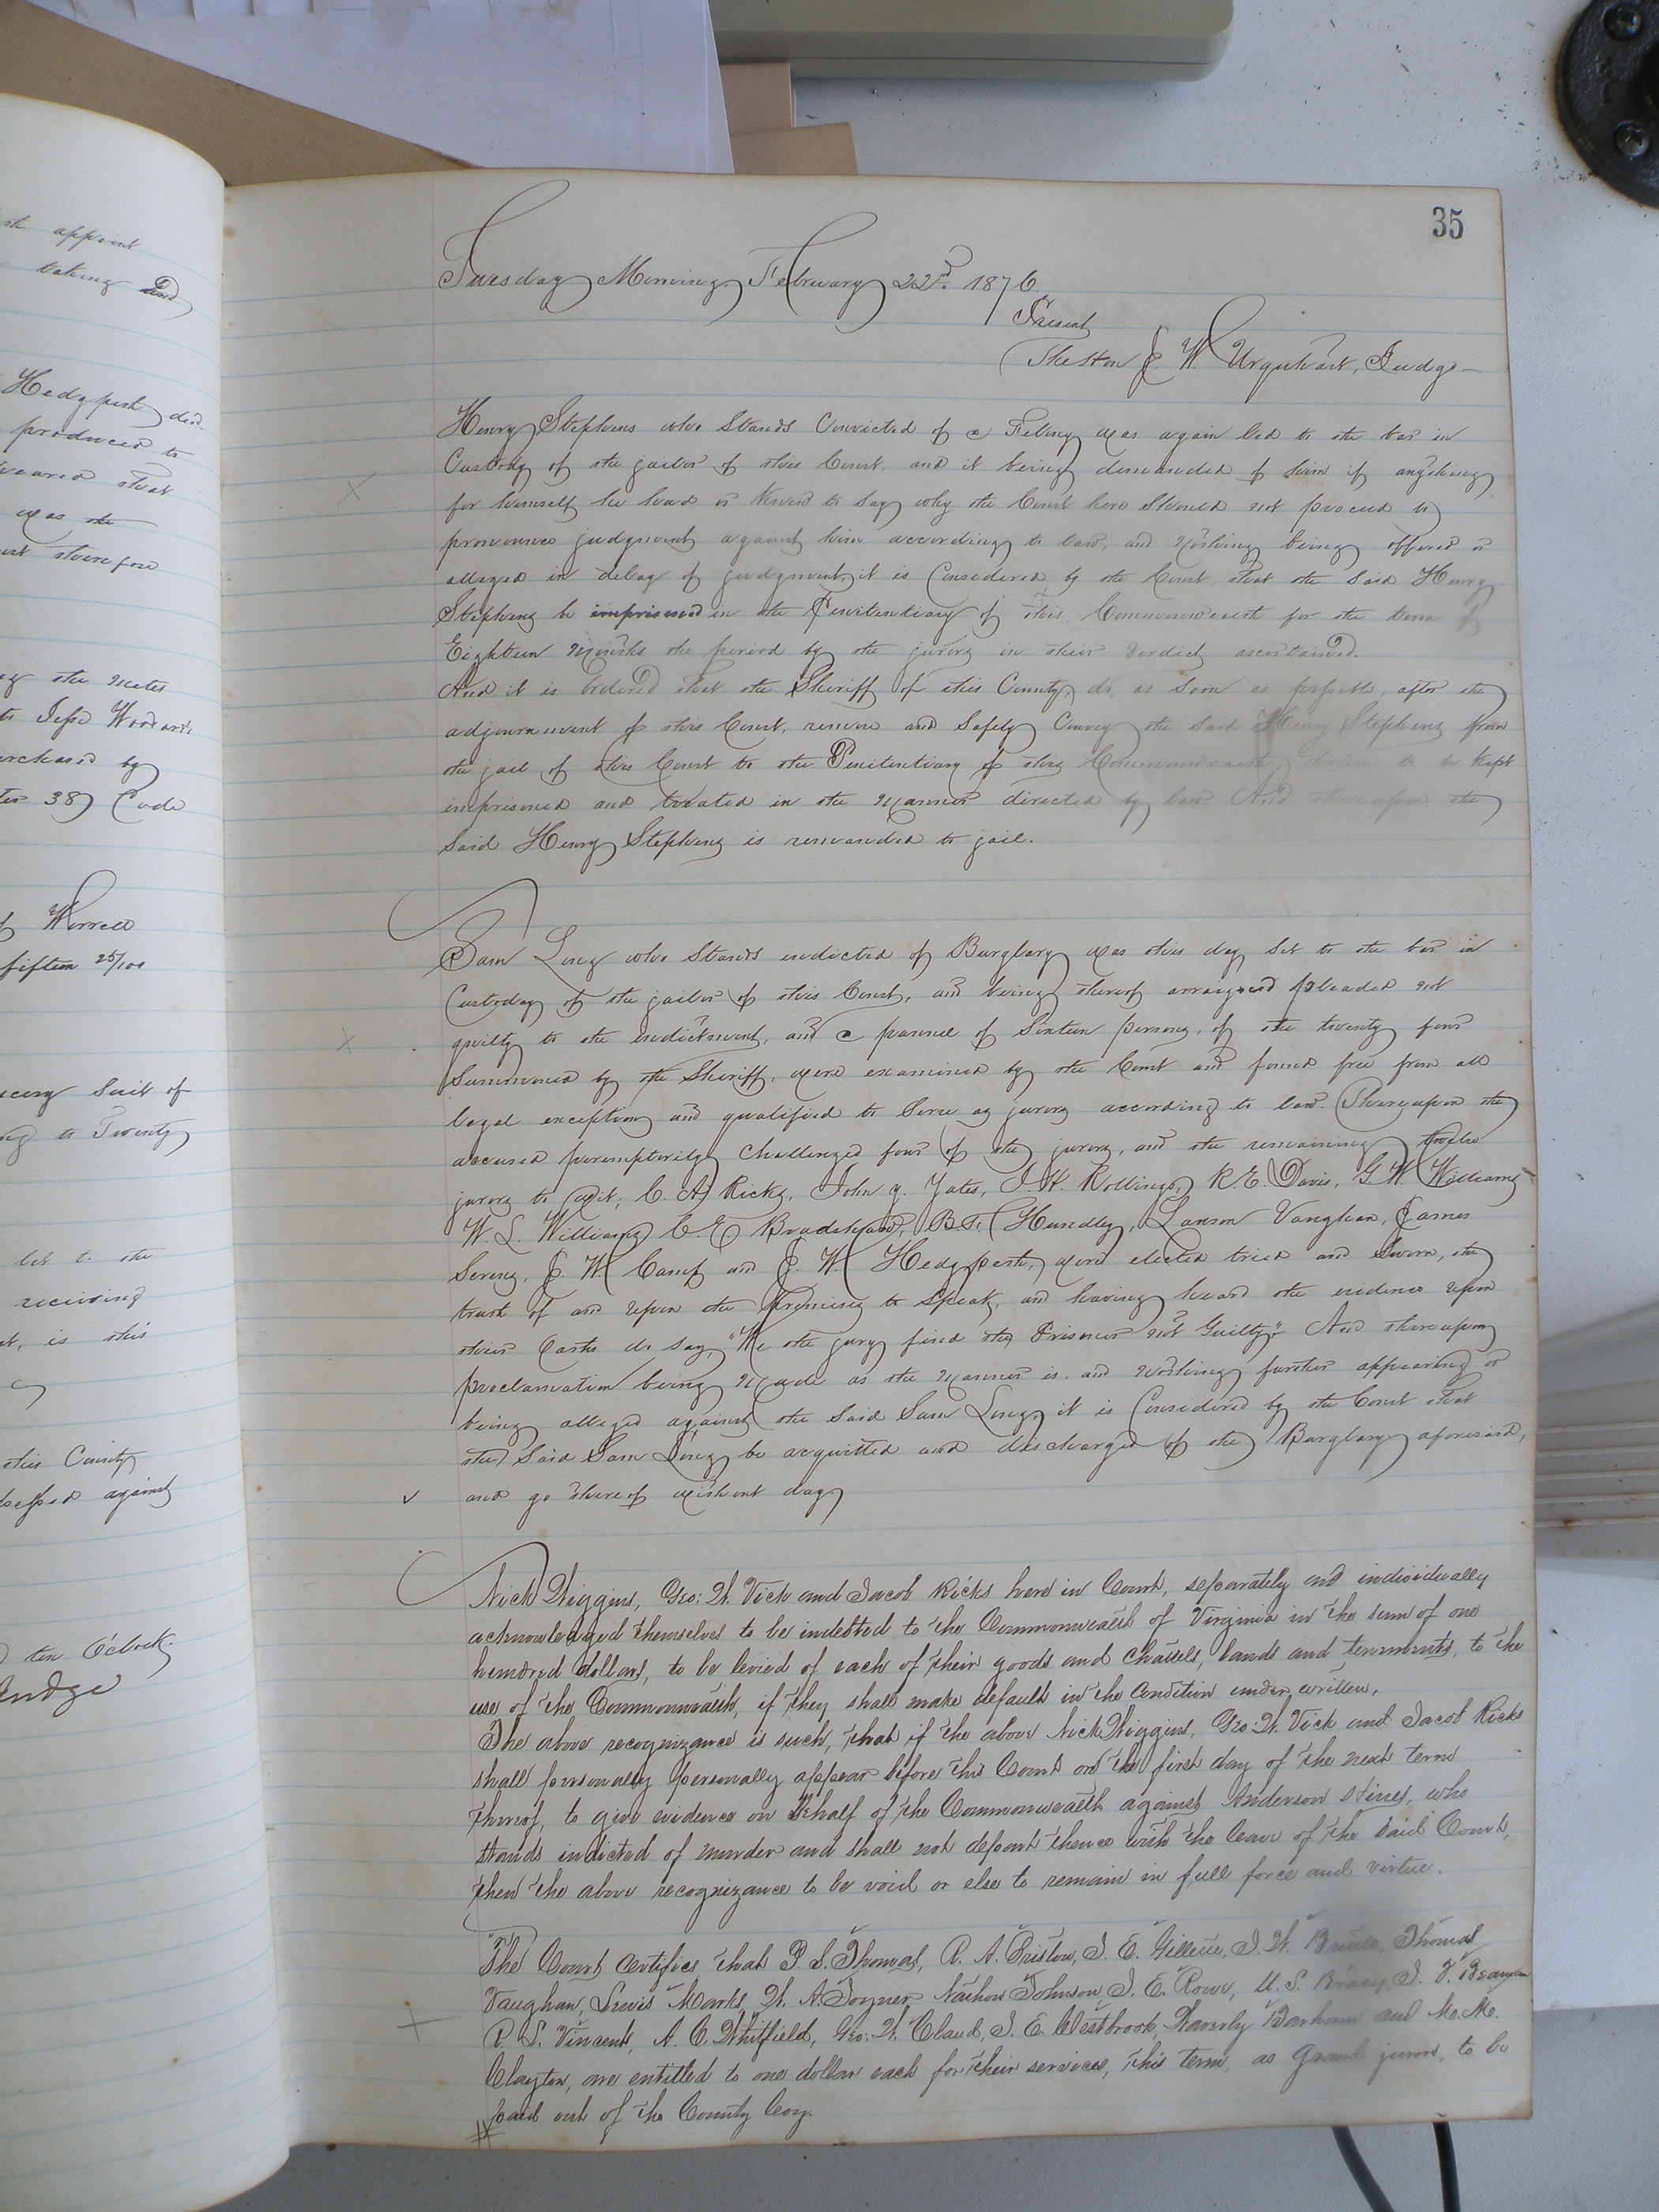 35
Tuesday Morning February 22nd. 1876.
Present
The Hon J. W. Urquhart, Judge
Henry Stephens who Stands Convicted of a Felony was again led to the bar in
Custody of the jailor of this Court. and it being demanded of him if anything
for himself he had or knew to say why the Court here Should not proceed to
pronounce judgment against him according to law, and Nothing being offered or
alleged in delay of judgment, it is Considered by the Court that the Said Henry
Stephens be imprisoned in the Penitentiary of this Commonwealth for the term of
Eighteen Months the period by the jurors in their Verdict ascertained.
And it is Ordered that the Sheriff of this County, do, as Soon as possible, after the
adjournment of this Court, remove and Safely Convey the Said Henry Stephens from
the jail of this Court to the Penitentiary of this Commonwealth, therein to be kept
imprisoned and treated in the Manner directed by law And thereupon the
Said Henry Stephens is remanded to jail.
Sam Long who Stands indicted of Burglary was this day Set to the bar in
Custody of the jailor of this Court, and being thereof arraigned pleaded not
guilty to the indictment, and a pannel of Sixteen persons, of the twenty four
Summoned by the Sheriff, were examined by the Court and found free from all
legal exception and qualified to Serve as jurors according to law. Thereupon the
accused peremptorily Challenged four of the jurors, and the remaining twelve
jurors to wit; C. A. Ricks, John Y. Yates, J. H. Rollings, R. E. Davis, G. W. Williams
W. L. Williams C. E. Bradshaw, B. F. Hundley, Lawson Vaughan, James
J. W. Camp and J. W. Hedgpeth, were elected tried and Sworn, the
truth of and upon the Premises to Speak, and having heard the evidence upon
their Oaths do say, "We the jury find the Prisoner not Guilty". And thereupon
proclamation being Made as the Manner is. and nothing further appearing or
being alleged against the Said Sam Long, it is Considered by the Court that
the Said Sam Long be acquitted and discharged of the Burglary aforesaid,
and go thereof without day
Nick Wiggins, Geo: W. Vick and Jacob Ricks here in Court, separately and individually
acknowledged themselves to be indebted to the Commonwealth of Virginia in the sum of one
hundred dollars, to be levied of each of their goods and chattels, lands and tenements, to the
use of the Commonwealth, if they shall make default in the Condition under written.
The above recognizance is such, that if the above Nick Wiggins, Geo: W. Vick and Jacob Ricks
shall personally personally appear before this Court on the first day of the next term
thereof, to give evidence on behalf of the Commonwealth against Anderson Stines, who
stands indicted of murder and shall not depart thence with the leave of the said Court,
then the above recognizance to be void or else to remain in full force and virtue.
The Court certifies that P. S. Thomas, R. A. Bristow, J. E. Gillette, J. W. Thomas
Vaughan, Lewis Marks, W. A. Joyner Nathan Johnson, J. E. Rowe, U. S. Bracy, J. F.
R. S. Vincent, A. C. Whitfield, Geo: W. Claud, J. E. Westbrook, Waverly Barham and M. M.
Clayton, are entitled to one dollar each for their services, this term, as Grand jurors, to be
paid out of the County levy.
appoint
taking
Hedgpeth decd.
produced to
that
was the
therefore
the Metes
to Jesse Woodard's
by
38) Code
Worrell
fifteen 25/100
Suit of
to Twenty
led to the
receiving
is this
this County
against
ten O'clock.
Judge